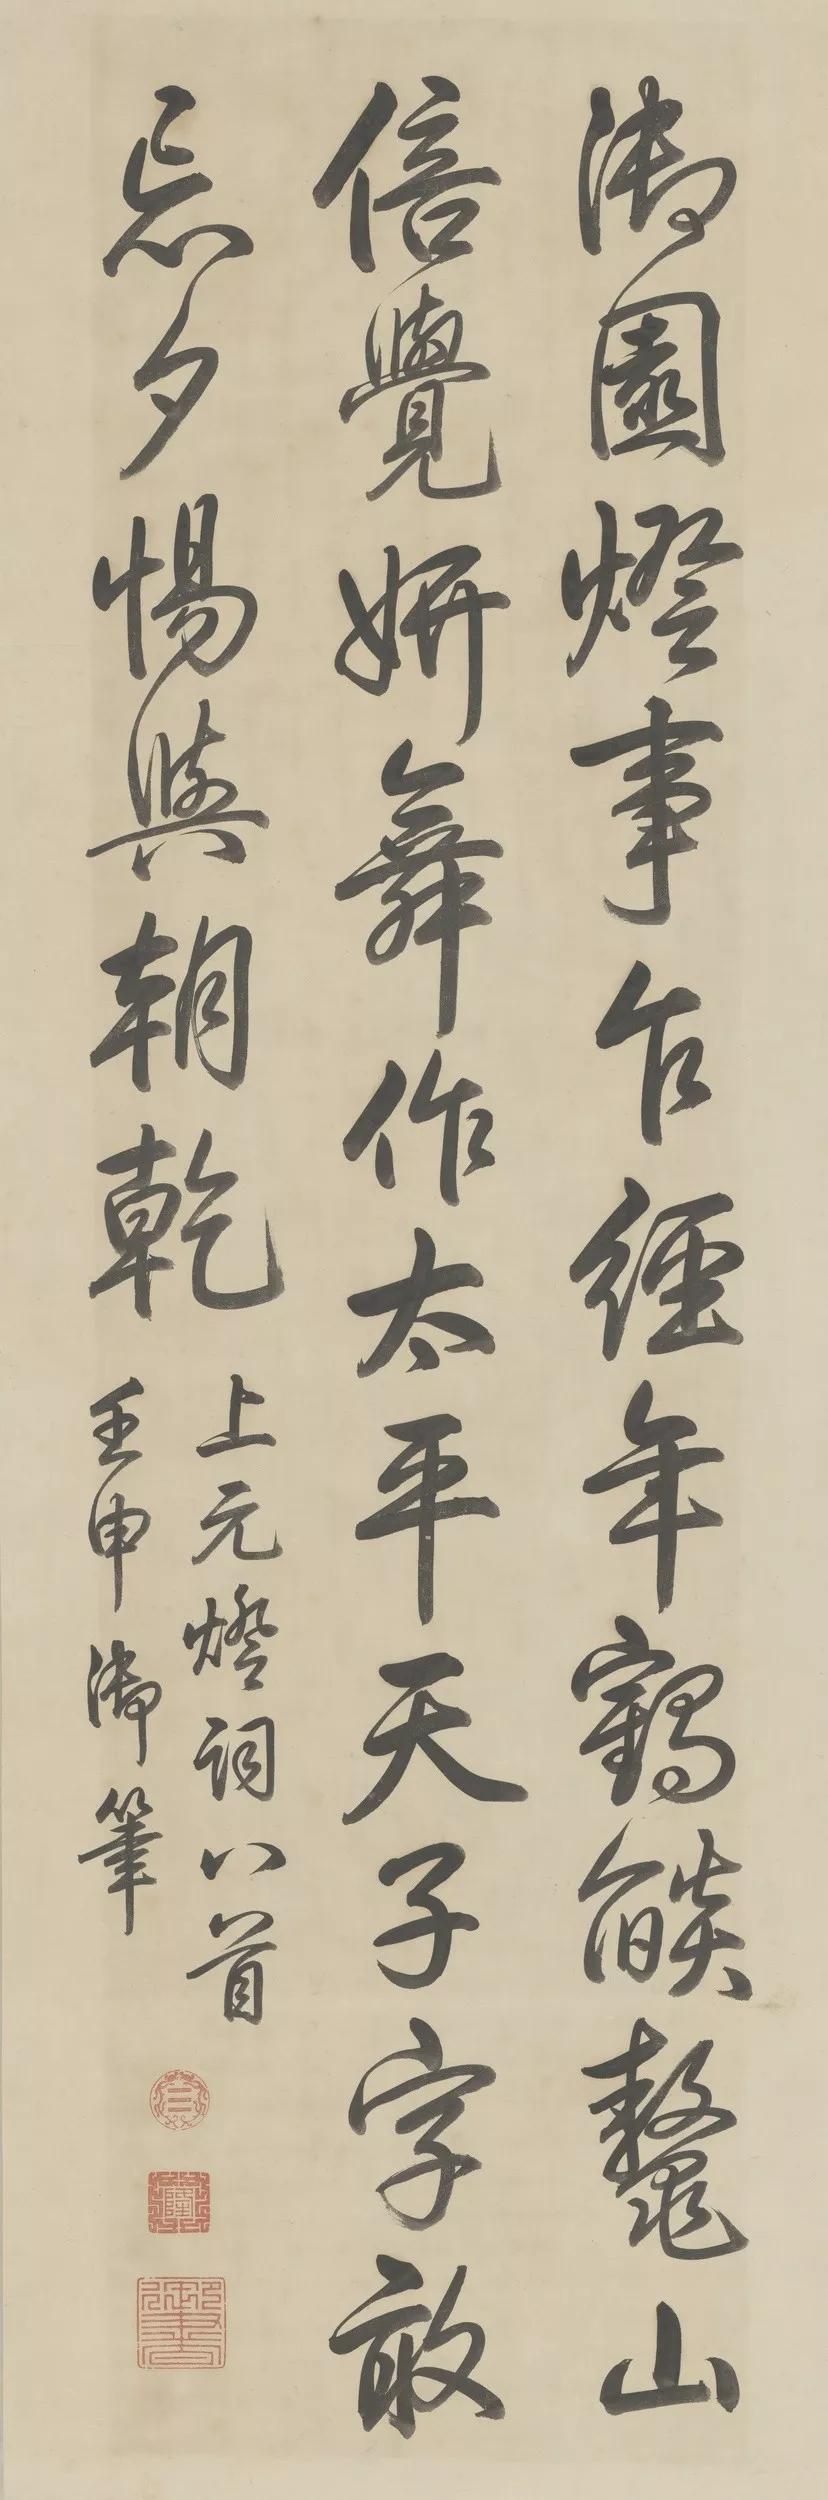 御園燈事乍經年鶴燄鼇山
倍覺妍舞作太平天子字敢
忘夕惕與朝乾
上元燈詞八首
壬申御筆
三
御書